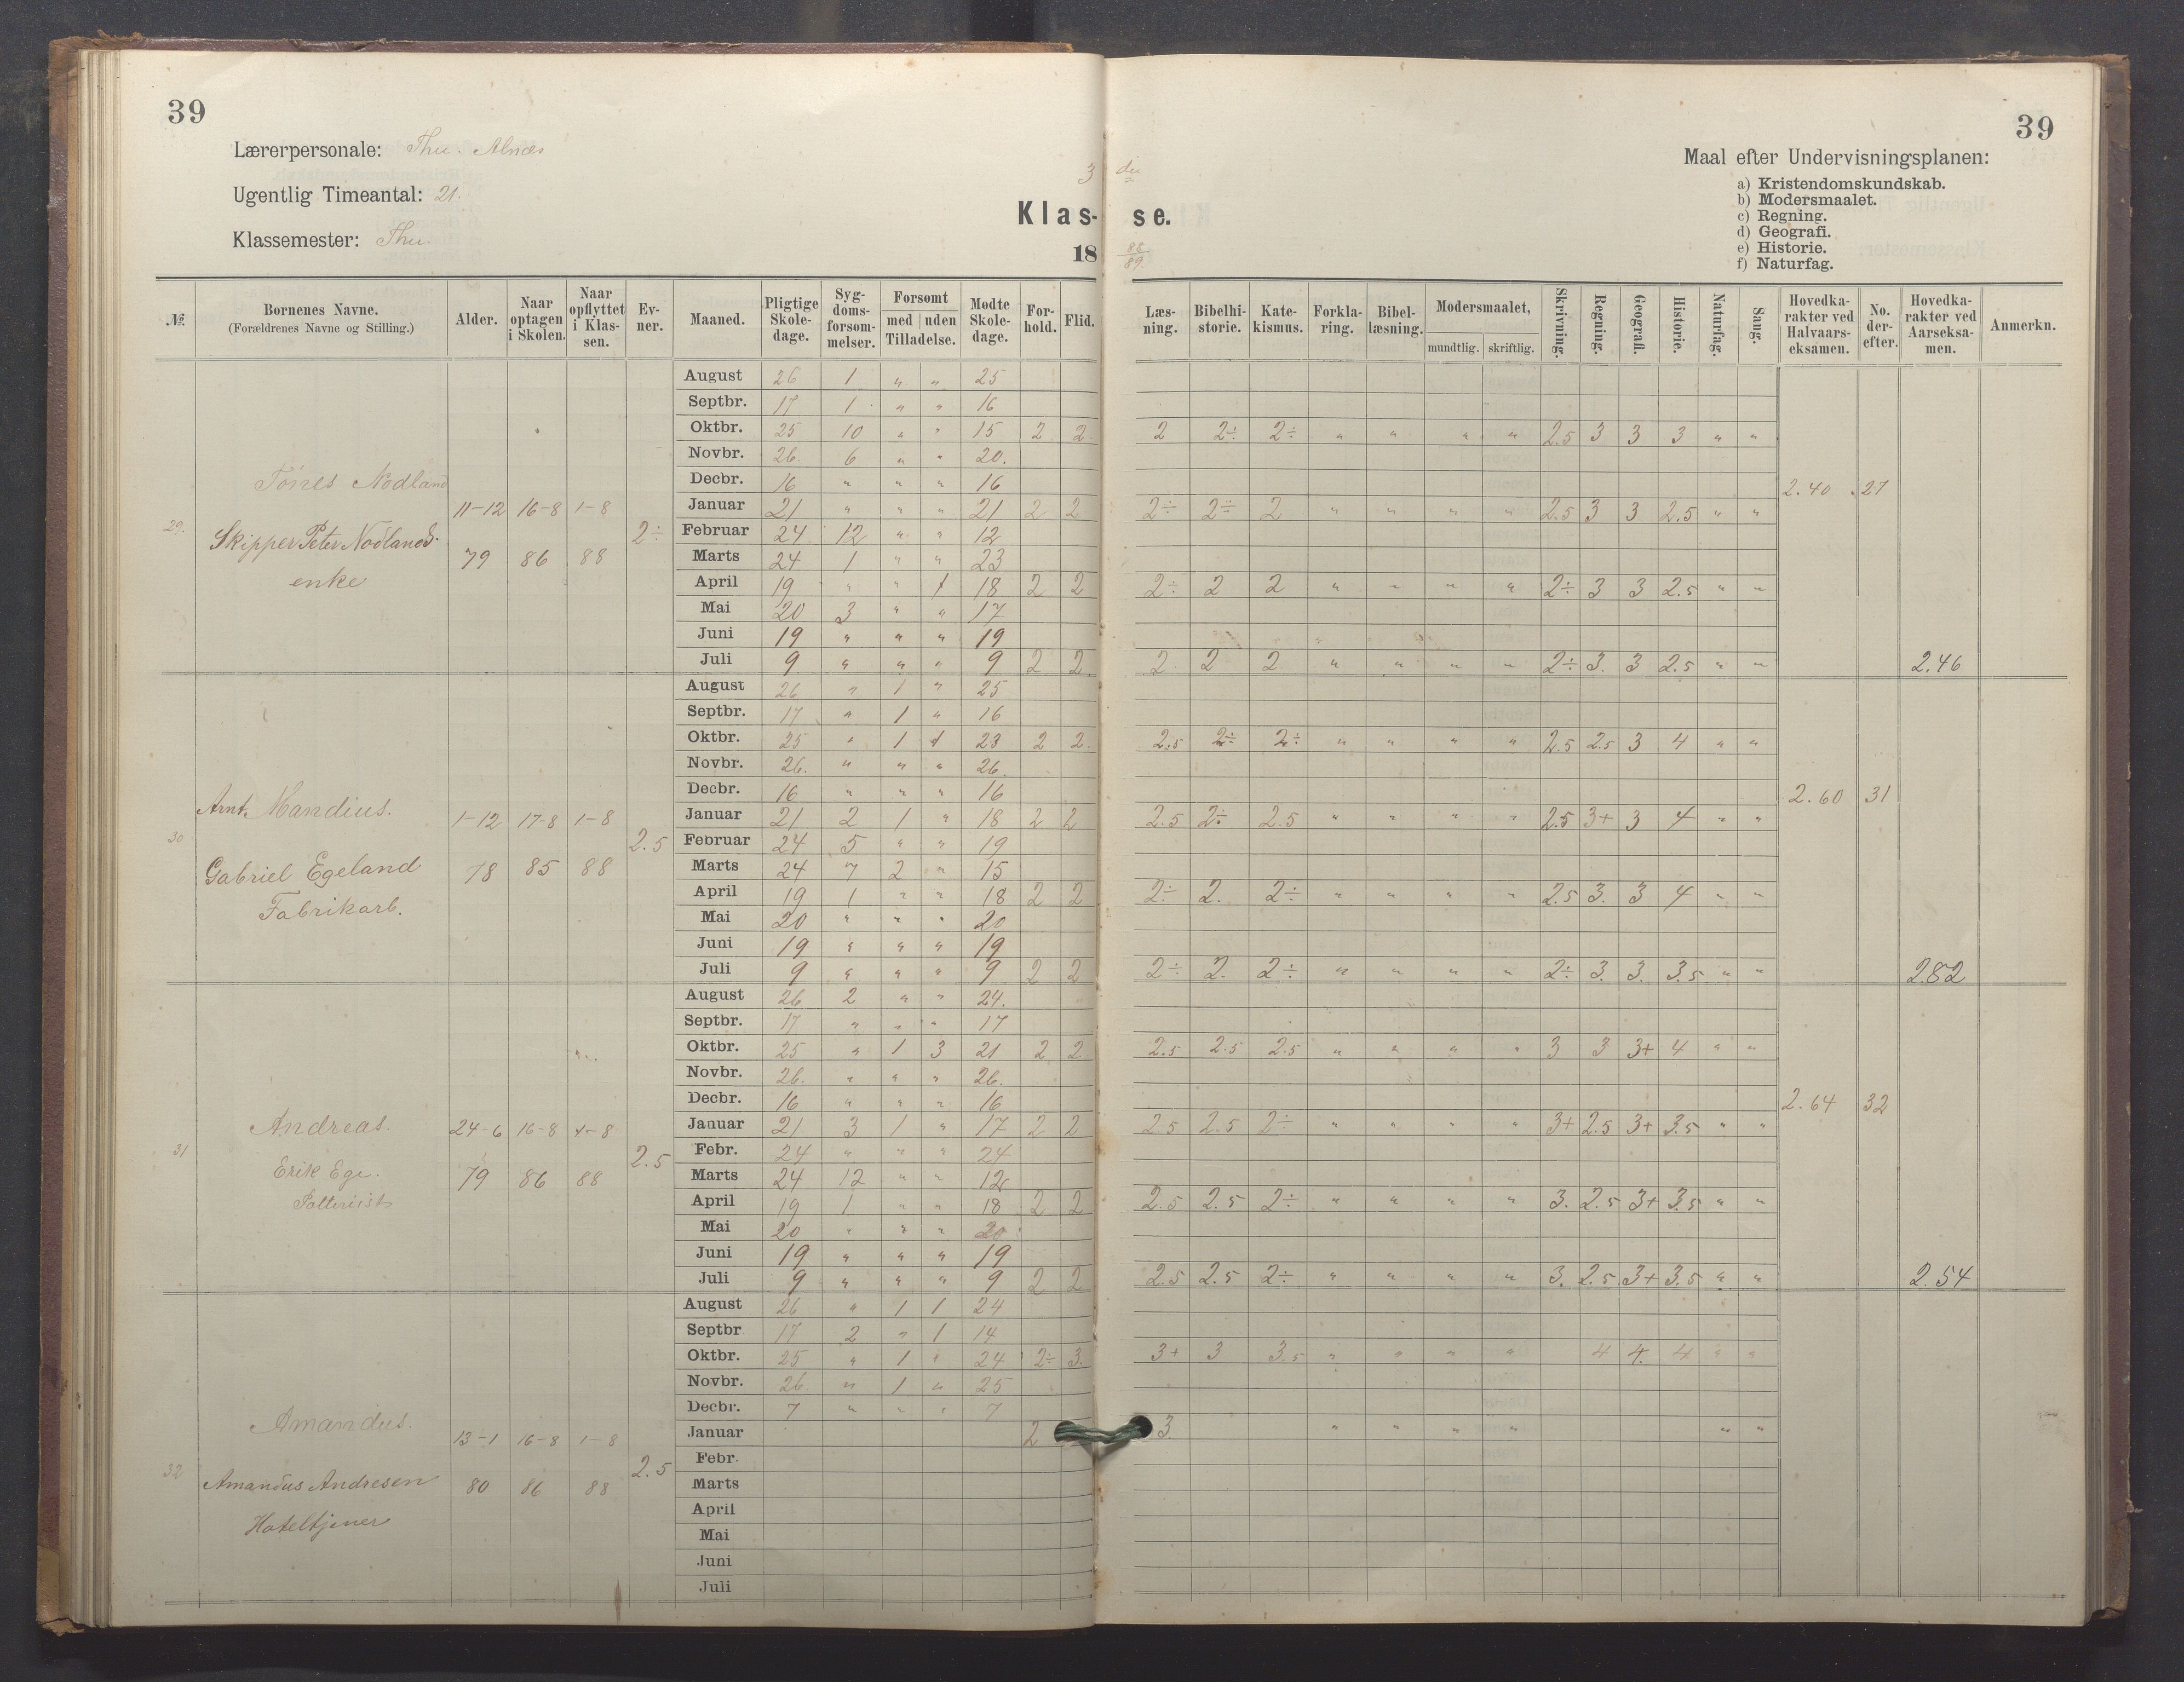 39
39
Lærerpersonale: Thu. Alnæs
Ugentlig Timeantal: 21.
Klassemester: Thu.
3 die
Klas- se.
18 88/89.
Maal efter Undervisningsplanen:
a) Kristendomskundskab.
b) Modersmaalet.
c) Regning.
d) Geografi.
e) Historie.
f) Naturfag.
№ | Bornenes Navne. (Forældrenes Navne og Stilling.) | Alder. | Naar optagen i Skolen. | Naar opflyttet i Klas- sen. | Ev- ner. | Maaned. | Pligtige Skole- dage. | Syg- doms- forsøm- melser. | Forsømt med uden Tilladelse. | Mødte Skole- dage. | For- hold. | Flid. | Læs- ning. | Bibelhi- storie. | Kate- kismus. | Forkla- ring. | Bibel- læsning. | Modersmaalet, mundtlig. skriftlig. | Skrivning. | Regning. | Geografi. | Historie. | Naturfag. | Sang. | Hovedka- rakter ved Halvaars- eksamen. | No. der- efter. | Hovedka- rakter ved Aarseksa- men. | Anmerkn.
29. Nodland
Skipper Peter Nodlands
enke
11-12 79 | 16-8 86 | 1-8 88 | 2÷
August 26 1 " " 25
Septbr. 17 1 " " 16
Oktbr. 25 10 " " 15 2 2 2 2÷ 2÷ " " " " 2.5 3 3 3 " "
Novbr. 26. 6 " " 20.
Decbr. 16 " " " 16 2.40 27
Januar 21 " " " 21 2 2 2÷ 2÷ 2 " " " " 2.5 3 3 2.5 " "
Februar 24 12 " " 12
Marts 24 1 " " 23
April 19 " " 1 18 2 2 2÷ 2 2 " " " " 2÷ 3 3 2.5 " "
Mai 20 3 " " 17
Juni 19 " " " 19
Juli 9 " " " 9 2 2 2 2 2 " " " " 2÷ 3. 3 2.5 " " 2.46
30 Arnt. Mandius.
Gabriel Egeland
Fabrikarb.
1-12 78 | 17-8 85 | 1-8 88 | 2.5
August 26 " 1 " 25
Septbr. 17 " 1 " 16
Oktbr. 25 " 1 1 23 2 2. 2.5 2÷ 2÷ " " " " 2.5 2.5 3 4 " "
Novbr. 26. " " " 26.
Decbr. 16 " " " 16 2.60 31
Januar 21 2 1 " 18 2 2 2.5 2÷ 2.5 " " " " 2.5 3+ 3 4 " "
Februar 24 5 " " 19
Marts 24 7 2 " 15
April 19 1 " " 18 2 2 2÷ 2. 2÷ " " " " 2.5 3. 3 4 " "
Mai 20 " " " 20
Juni 19 " " " 19
Juli 9 " " " 9 2 2 2÷ 2. 2÷ " " " " 2÷ 3. 3. 3.5 " " 2.82
31 Andreas.
Erik Ege.
24-6 79 | 16-8 86 | 1-8 88 | 2.5
August 26 2 " " 24.
Septbr. 17 " " " 17
Oktbr. 25 " 1 3 21 2 2 2.5 2.5 2.5 " " " " 3 3 3+ 4 " "
Novbr. 26. " " " 26.
Decbr. 16 " " " 16 2.64 32
Januar 21 3 1 " 17 2 2 2.5 2.5 2÷ " " " " 3+ 2.5 3+ 3.5 " "
Febr. 24 " " " 24
Marts 24 12 " " 12
April 19 1 " " 18 2 2 2.5 2.5 2÷ " " " " 3. 2.5 3+ 3.5 " "
Mai 20 " " " 20
Juni 19 " " " 19
Juli 9 " " " 9 2 2 2.5 2.5 2÷ " " " " 3. 2.5 3+ 3.5 " " 2.54
32 Amandus.
Amandus Andresen
Hoteltjener
13-1 80 | 16-8 86 | 1-8 88 | 2.5
August 26 " 1 1 24
Septbr 17 2 " 1 14
Oktbr. 25 " 1 " 24 2÷ 3. 3+ 3 3.5 " " " " 4 4. 4 " "
Novbr. 26. " 1 " 25
Decbr. 7 " " " 7
Januar 2 3 " " " " " "
Febr.
Marts
April
Mai
Juni
Juli